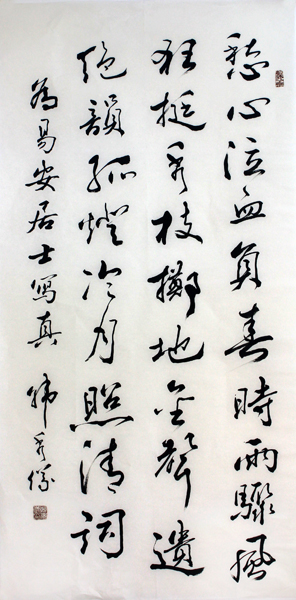 愁心泣血負春時雨驟風
狂挺秀枝擲地金聲遺
絕韻孤燈冷月照清詞
為易安居士寫真